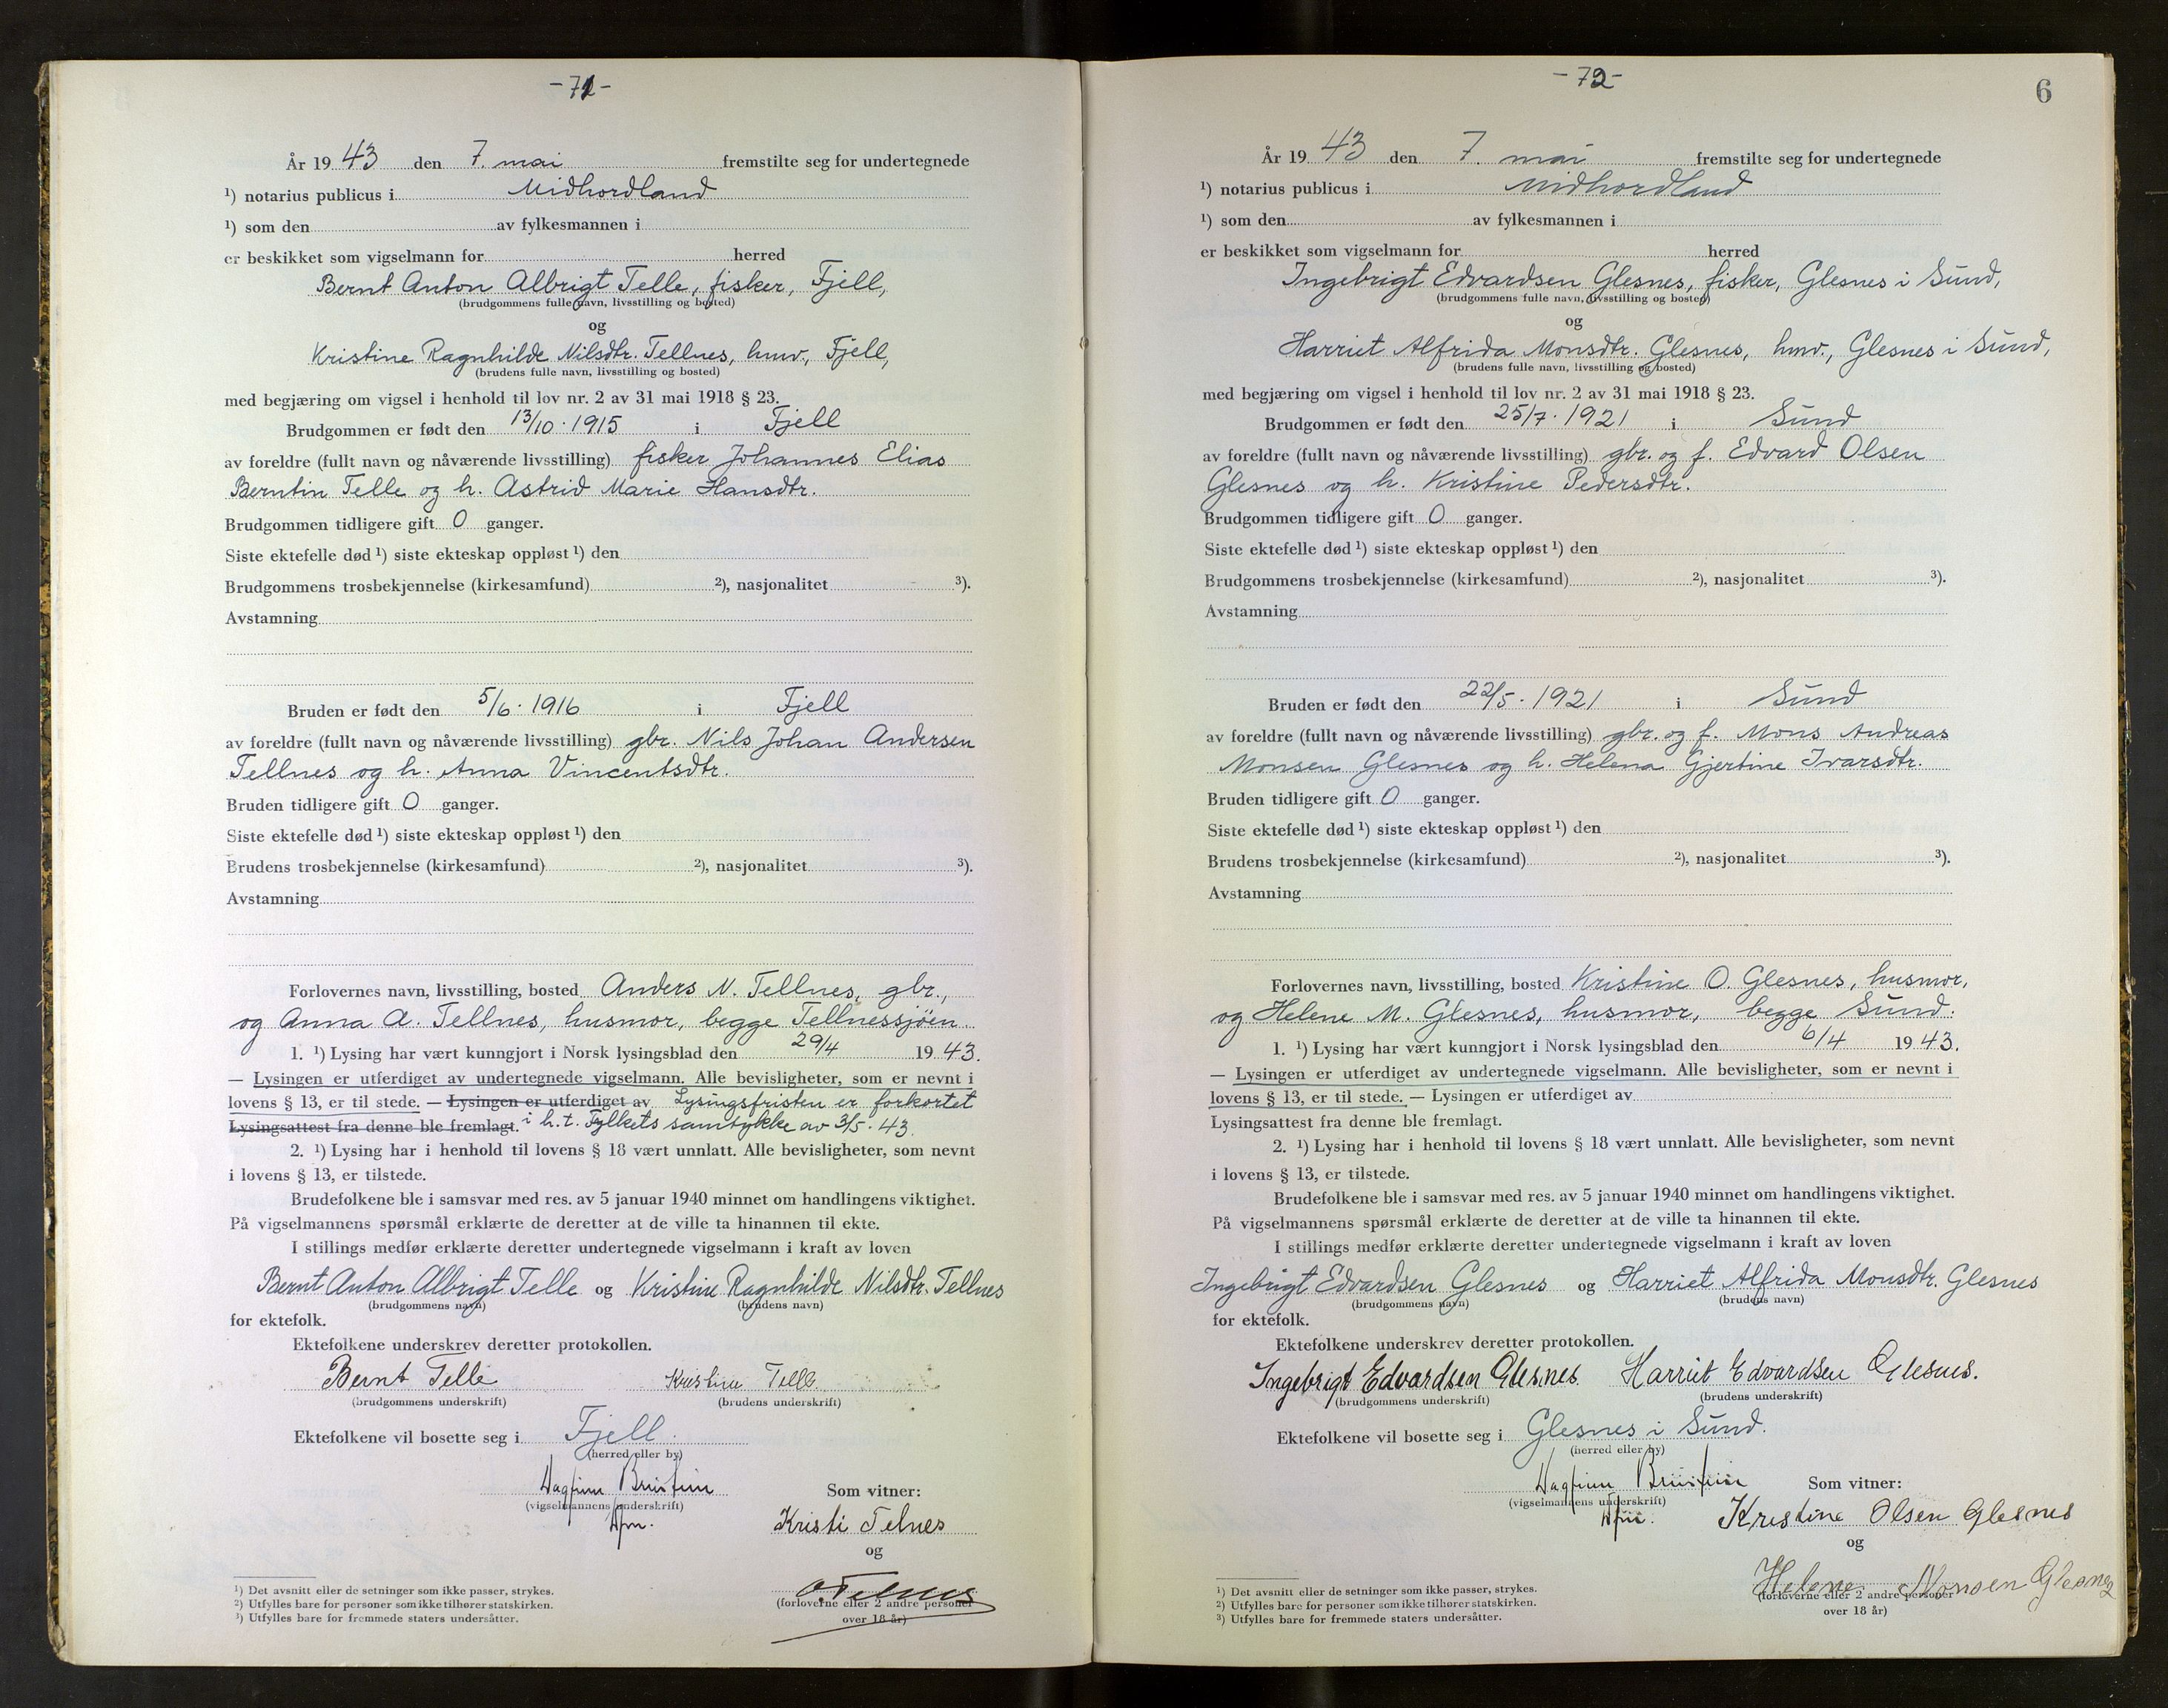 -71-
År 1943 den 7. mai fremstilte seg for undertegnede
¹) notarius publicus i Midhordland
¹) som den av fylkesmannen i
er beskikket som vigselmann for herred
Bernt Anton Albrigt Telle, fisker, Fjell,
(brudgommens fulle navn, livsstilling og bosted)
og
Kristine Ragnhilde Nilsdtr. Tellnes, hmv., Fjell,
(brudens fulle navn, livsstilling og bosted)
med begjæring om vigsel i henhold til lov nr. 2 av 31 mai 1918 § 23.
Brudgommen er født den 13/10. 1915 i Fjell
av foreldre (fullt navn og nåværende livsstilling) fisker Johannes Elias
Berntin Telle og h. Astrid Marie Hansdtr.
Brudgommen tidligere gift 0 ganger.
Siste ektefelle død ¹) siste ekteskap oppløst ¹) den
Brudgommens trosbekjennelse (kirkesamfund) ²), nasjonalitet ³).
Avstamning
Bruden er født den 5/6. 1916 i Fjell
av foreldre (fullt navn og nåværende livsstilling) gbr. Nils Johan Andersen
Tellnes og h. Anna Vincentsdtr.
Bruden tidligere gift 0 ganger.
Siste ektefelle død ¹) siste ekteskap oppløst ¹) den
Brudens trosbekjennelse (kirkesamfund) ²), nasjonalitet ³).
Avstamning
Forlovernes navn, livsstilling, bosted Anders N. Tellnes, gbr.,
og Anna A. Tellnes, husmor, begge Tellnessjöen.
1. ¹) Lysing har vært kunngjort i Norsk lysingsblad den 29/4 1943.
— Lysingen er utferdiget av undertegnede vigselmann. Alle bevisligheter, som er nevnt i
lovens § 13, er til stede. — Lysingen er utferdiget av Lysingsfristen er forkortet
Lysingsattest fra denne ble fremlagt. i h.t. Fylkets samtykke av 3/5. 43.
2. ¹) Lysing har i henhold til lovens § 18 vært unnlatt. Alle bevisligheter, som nevnt
i lovens § 13, er tilstede.
Brudefolkene ble i samsvar med res. av 5 januar 1940 minnet om handlingens viktighet.
På vigselmannens spørsmål erklærte de deretter at de ville ta hinannen til ekte.
I stillings medfør erklærte deretter undertegnede vigselmann i kraft av loven
Bernt Anton Albrigt Telle og Kristine Ragnhilde Nilsdtr. Tellnes
(brudgommens navn) (brudens navn)
for ektefolk.
Ektefolkene underskrev deretter protokollen.
Bernt Telle Kristine Telle
(brudgommens underskrift) (brudens underskrift)
Ektefolkene vil bosette seg i Fjell.
(herred eller by)
Dagfinn
(vigselmannens underskrift) Som vitner:
Kristi Telnes
og
Telnes
(forloverne eller 2 andre personer
over 18 år)
¹) Det avsnitt eller de setninger som ikke passer, strykes.
²) Utfylles bare for personer som ikke tilhører statskirken.
³) Utfylles bare for fremmede staters undersåtter.
-72-
6
År 1943 den 7. mai fremstilte seg for undertegnede
¹) notarius publicus i Midhordland
¹) som den av fylkesmannen i
er beskikket som vigselmann for herred
Ingebrigt Edvardsen Glesnes, fisker, Glesnes i Sund,
(brudgommens fulle navn, livsstilling og bosted)
og
Harriet Alfrida Monsdtr. Glesnes, hmv., Glesnes i Sund,
(brudens fulle navn, livsstilling og bosted)
med begjæring om vigsel i henhold til lov nr. 2 av 31 mai 1918 § 23.
Brudgommen er født den 25/7. 1921 i Sund
av foreldre (fullt navn og nåværende livsstilling) gbr. og f. Edvard Olsen
Glesnes og h. Kristine Pedersdtr.
Brudgommen tidligere gift 0 ganger.
Siste ektefelle død ¹) siste ekteskap oppløst ¹) den
Brudgommens trosbekjennelse (kirkesamfund) ²), nasjonalitet ³).
Avstamning
Bruden er født den 22/5. 1921 i Sund
av foreldre (fullt navn og nåværende livsstilling) gbr. og f. Mons Andreas
Monsen Glesnes og h. Helena Gjertine Ivarsdtr.
Bruden tidligere gift 0 ganger.
Siste ektefelle død ¹) siste ekteskap oppløst ¹) den
Brudens trosbekjennelse (kirkesamfund) ²), nasjonalitet ³).
Avstamning
Forlovernes navn, livsstilling, bosted Kristine O. Glesnes, husmor,
og Helene M. Glesnes, husmor, begge Sund.
1. ¹) Lysing har vært kunngjort i Norsk lysingsblad den 6/4 1943.
— Lysingen er utferdiget av undertegnede vigselmann. Alle bevisligheter, som er nevnt i
lovens § 13, er til stede. — Lysingen er utferdiget av
Lysingsattest fra denne ble fremlagt.
2. ¹) Lysing har i henhold til lovens § 18 vært unnlatt. Alle bevisligheter, som nevnt
i lovens § 13, er tilstede.
Brudefolkene ble i samsvar med res. av 5 januar 1940 minnet om handlingens viktighet.
På vigselmannens spørsmål erklærte de deretter at de ville ta hinannen til ekte.
I stillings medfør erklærte deretter undertegnede vigselmann i kraft av loven
Ingebrigt Edvardsen Glesnes og Harriet Alfrida Monsdtr. Glesnes
(brudgommens navn) (brudens navn)
for ektefolk.
Ektefolkene underskrev deretter protokollen.
Ingebrigt Edvardsen Glesnes Harriet Edvardsen Glesnes.
(brudgommens underskrift) (brudens underskrift)
Ektefolkene vil bosette seg i Glesnes i Sund.
(herred eller by)
Dagfinn
(vigselmannens underskrift) Som vitner:
Kristine Olsen Glesnes
og
Helene Monsen Glesnes
(forloverne eller 2 andre personer
over 18 år)
¹) Det avsnitt eller de setninger som ikke passer, strykes.
²) Utfylles bare for personer som ikke tilhører statskirken.
³) Utfylles bare for fremmede staters undersåtter.